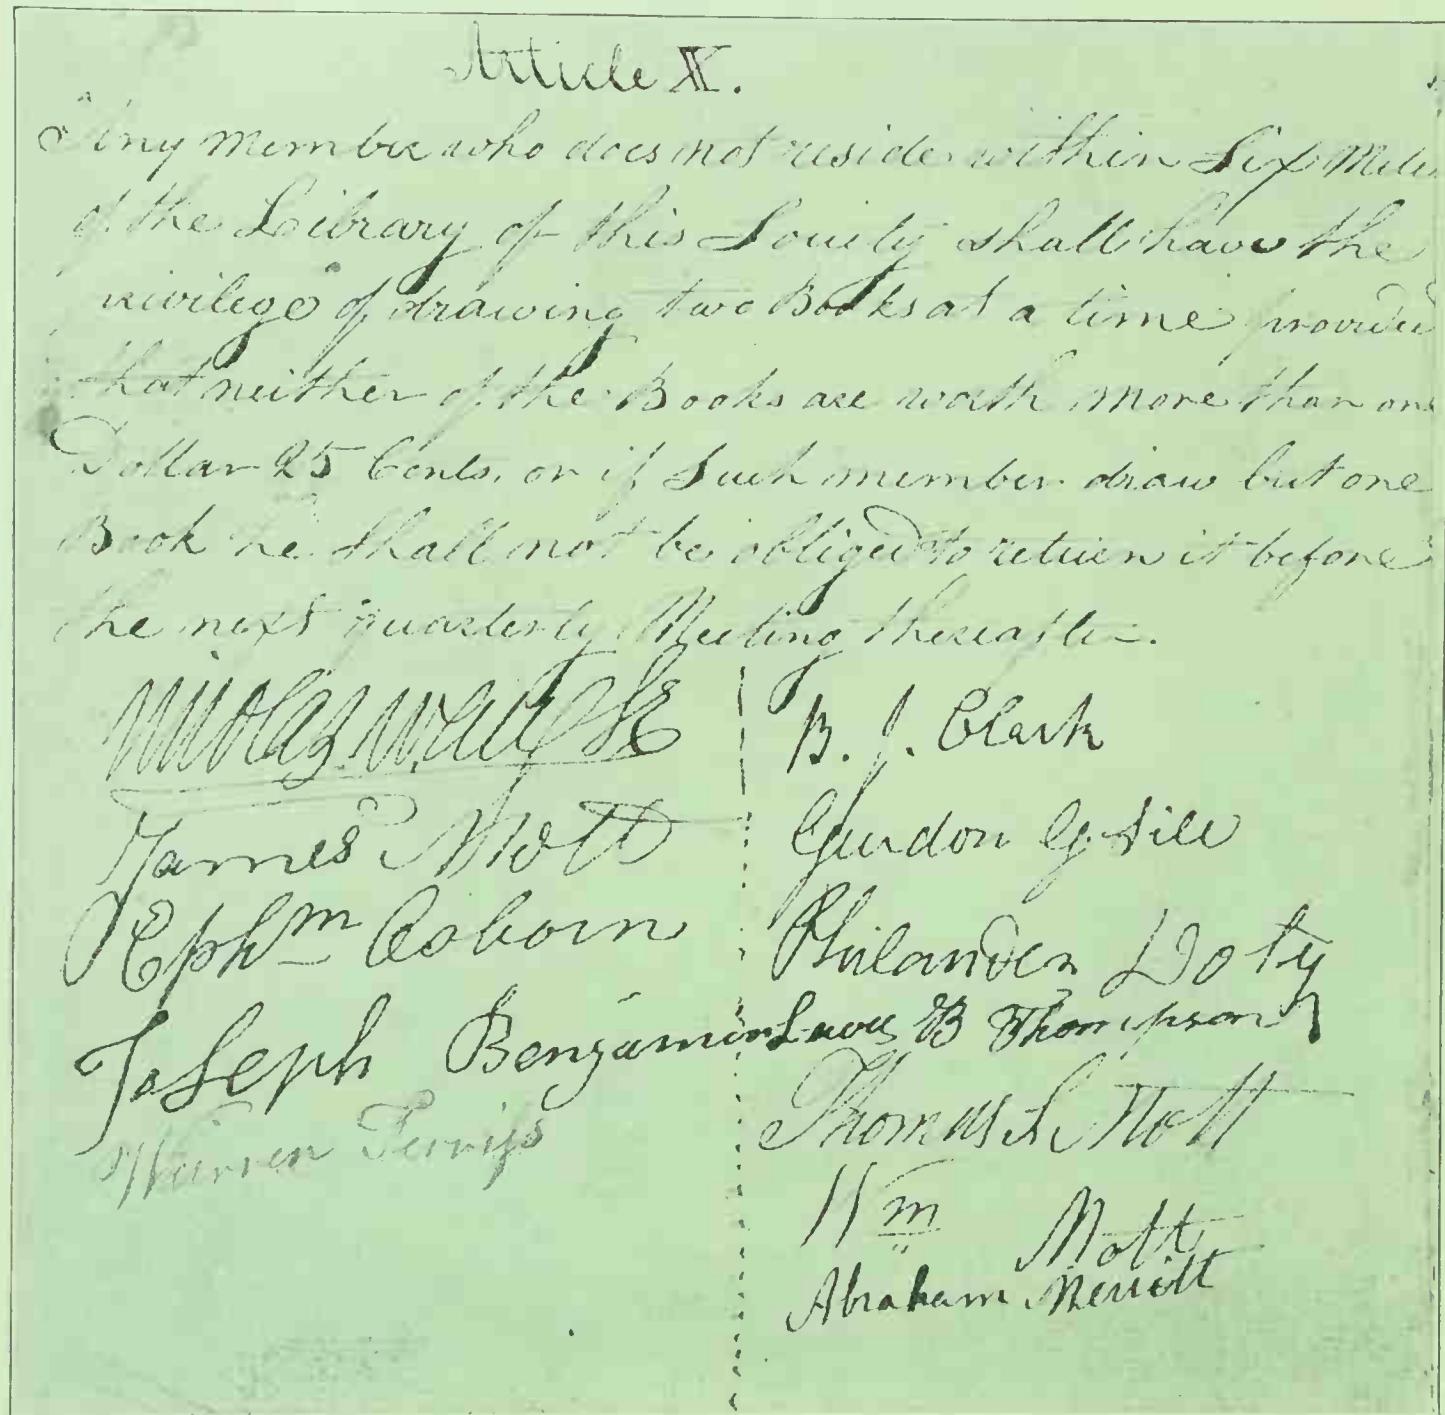 Article X.
Any Member who does not reside within Six Miles
of the Library of this Society shall have the
privilege of drawing two Books at a time provided
that neither of the Books are worth more than one
Dollar 25 Cents. or if Such member draw but one
Book he shall not be obliged to return it before
the next quarterly Meeting thereafter.
James Mott
Ephm Osborn
Joseph Benjamin
Warren
B. J. Clark
Gurdon G. Sill
Philander Doty
Lewis B Thompson
Thomas S Mott
Wm Mott
Abraham Merritt